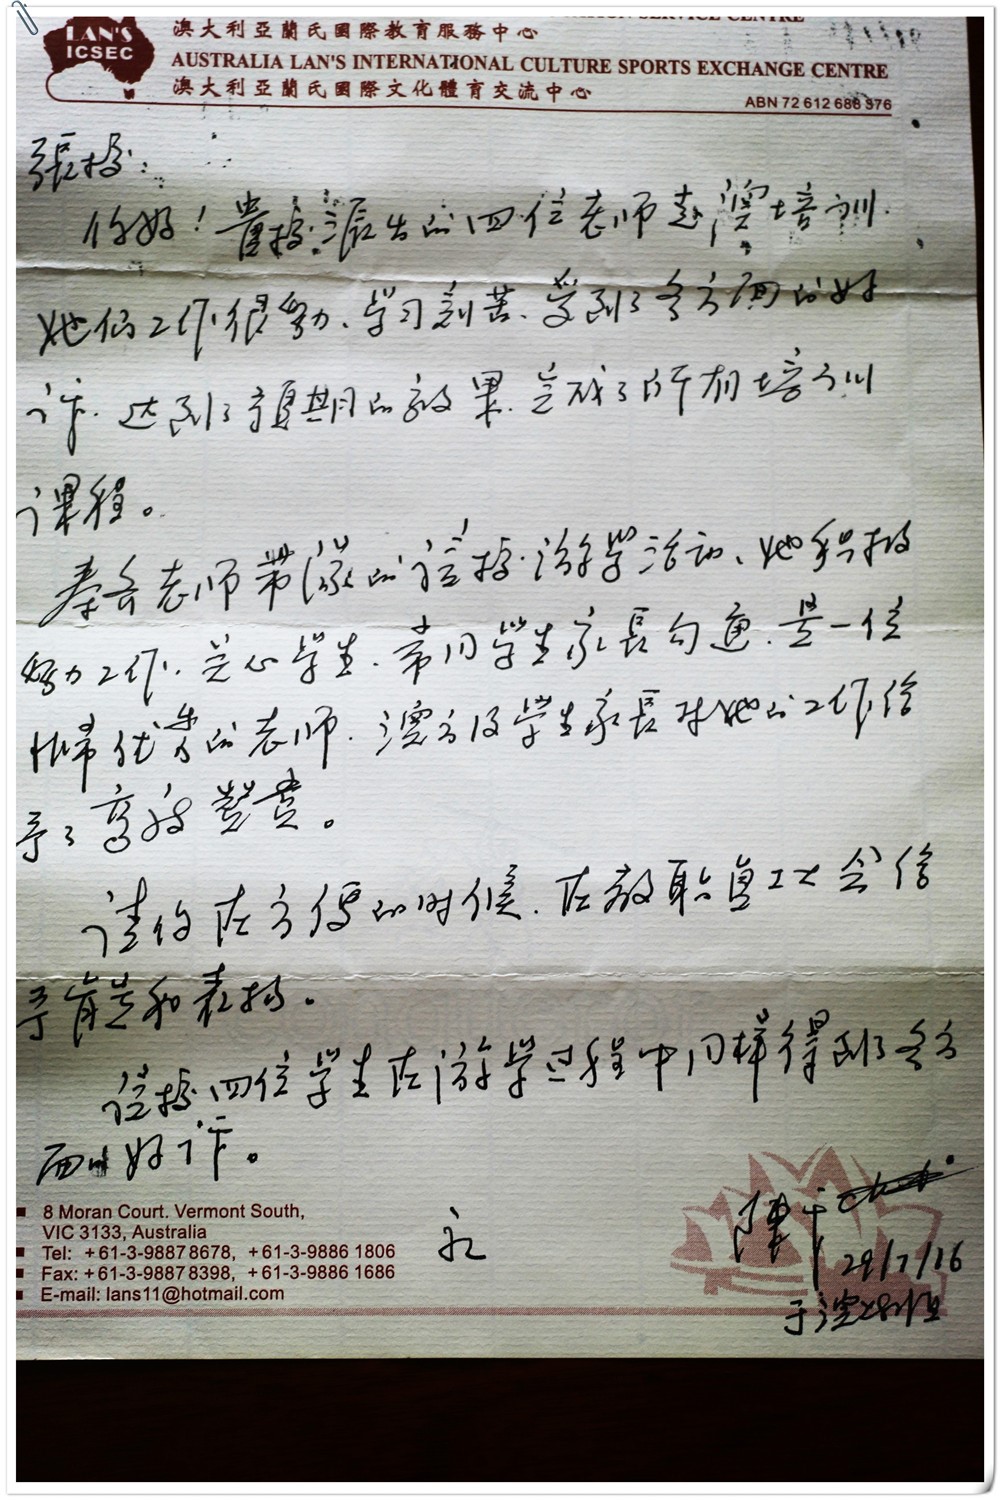 LAN'S
ICSEC
SERVICE CENTRE
澳大利亞蘭氏國際教育服務中心
AUSTRALIA LAN'S INTERNATIONAL CULTURE SPORTS EXCHANGE CENTRE
澳大利亞蘭氏國際文化體育交流中心
ABN 72 612 686 376
張校:
你好!貴校派出的四位老师赴澳培训.
她们工作很努力、学习刻苦、受到了各方面的好
评.达到了预期的效果.完成了所有培训
课程。
秦 老师带队的 校游学活动、她积极
努力工作.关心学生.常同学生家長勾通.是一位
非常优秀的老师.澳方及学生家長对她的工作给
予了高度赞赏。
请你在方便的时候.在教职員工大会给
予肯定和表扬。
该校四位学生在游学过程中同样得到了各方
面的好评。
8 Moran Court. Vermont South,
VIC 3133, Australia
Tel: +61-3-9887 8678, +61-3-9886 1806
Fax: +61-3-9887 8398, +61-3-9886 1686
E-mail: lans11@hotmail.com
陳
29/7/16
于澳